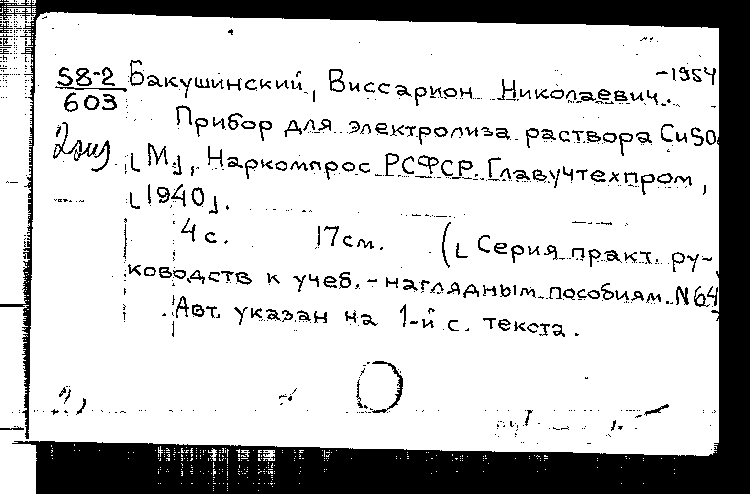 -1954
58-2 Бакушинский, Виссарион Николаевич.
603
Прибор для электролиза раствора CuSO
2 экз
[М.], Наркомпрос РСФСР. Главучтехпром,
[1940].
4 с. 17 см. ([Серия практ. ру-
ководств к учеб.-наглядным пособиям. N 64
Авт. указан на 1-й с. текста.